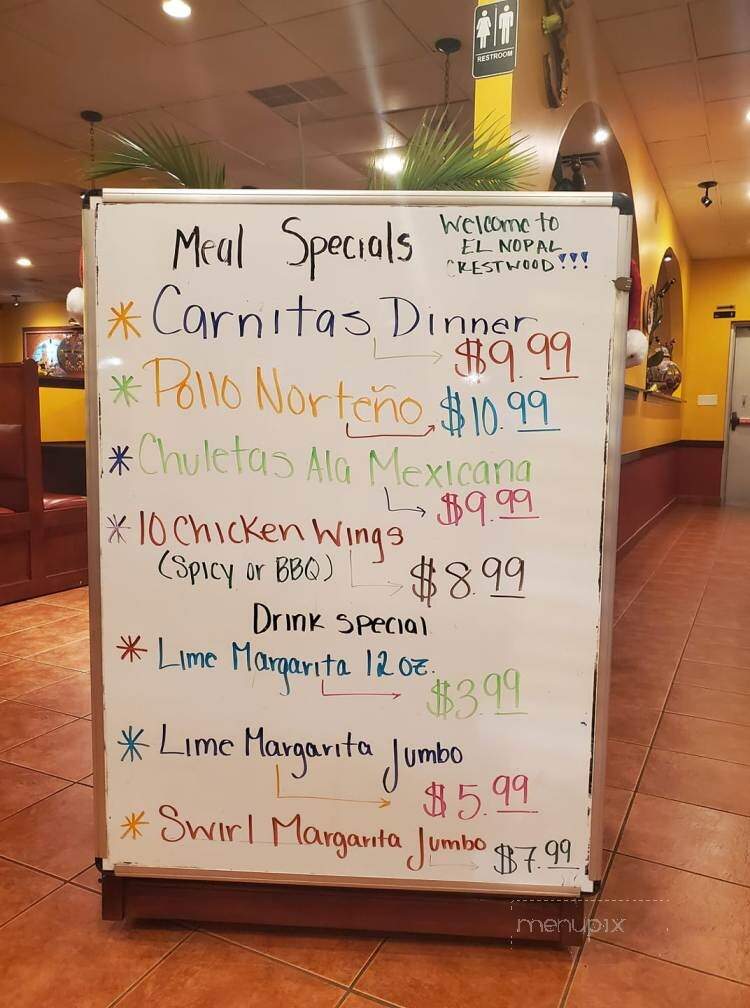 RESTROOM
Meal Specials
Welcome to
EL NOPAL
CRESTWOOD!!!
* Carnitas Dinner
$9.99
* Pollo Norteño
$10.99
* Chuletas Ala Mexicana
$9.99
* 10 Chicken Wings
(Spicy or BBQ)
$8.99
Drink special
* Lime Margarita 12 oz.
$3.99
* Lime Margarita Jumbo
$5.99
* Swirl Margarita Jumbo
$7.99
menupix